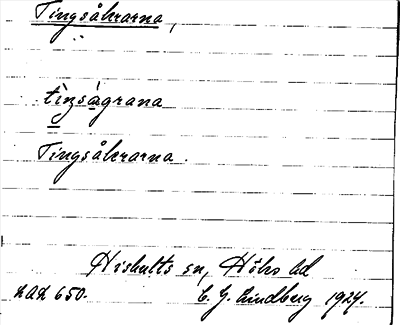 Tingsåkrarna,
tìŋsågrana
Tingsåkrarna.
Hishults sn, Höks hd
LAL 650. C. G. Lindberg 1927.